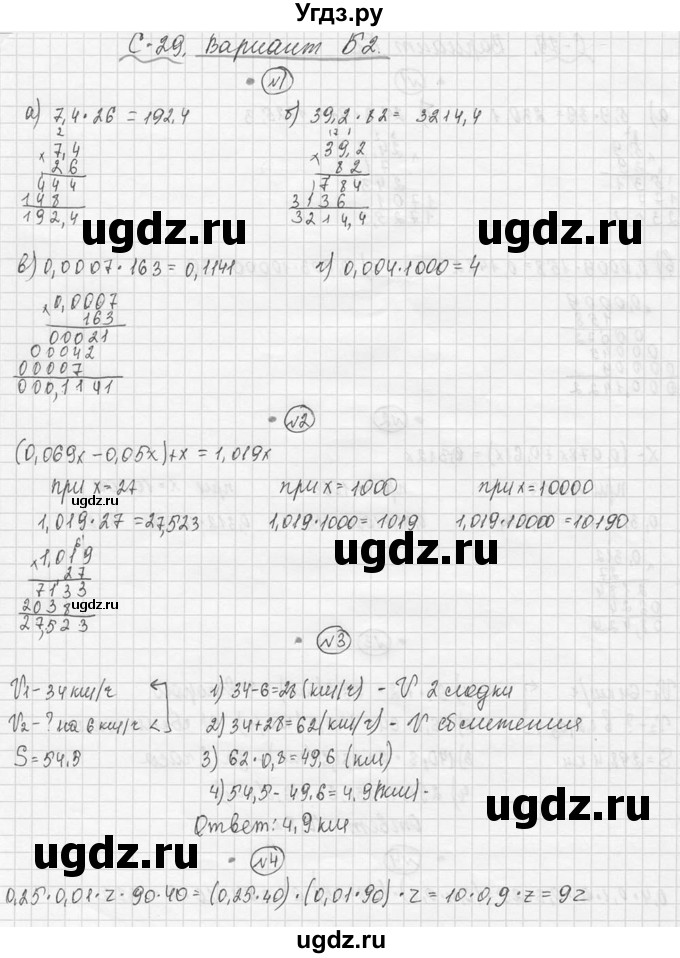 Угдз.ру
С-29. Вариант Б2.
№1
а) 7,4·26=192,4
б) 39,2·82= 3214,4
2
×7,4
26
444
148
192,4
17 1
×39,2
82
784
3136
3214,4
в) 0,0007·163=0,1141
г) 0,004·1000=4
×0,0007
163
00021
00042
00007
000,1141
№2
(0,069х-0,05х)+х=1,019х
при х=27
при х=1000
при х=10000
1,019·27=27,523
1,019·1000=1019
1,019·10000=10190
×1,019
27
7133
2038
27,523
№3
V1-34км/ч
1) 34-6=28(км/ч) - V 2 лодки
V2-? на 6км/ч <
2) 34+28=62(км/ч) - V сближения
S=54,5
3) 62·0,8=49,6 (км)
4) 54,5-49,6=4,9(км)-
Ответ: 4,9 км
№4
0,25·0,01·z·90·40=(0,25·40)·(0,01·90)·z=10·0,9·z=9z
ugdz.ru
ugdz.ru
ugdz.ru
ugdz.ru
ugdz.ru
ugdz.ru
ugdz.ru
ugdz.ru
ugdz.ru
ugdz.ru
ugdz.ru
ugdz.ru